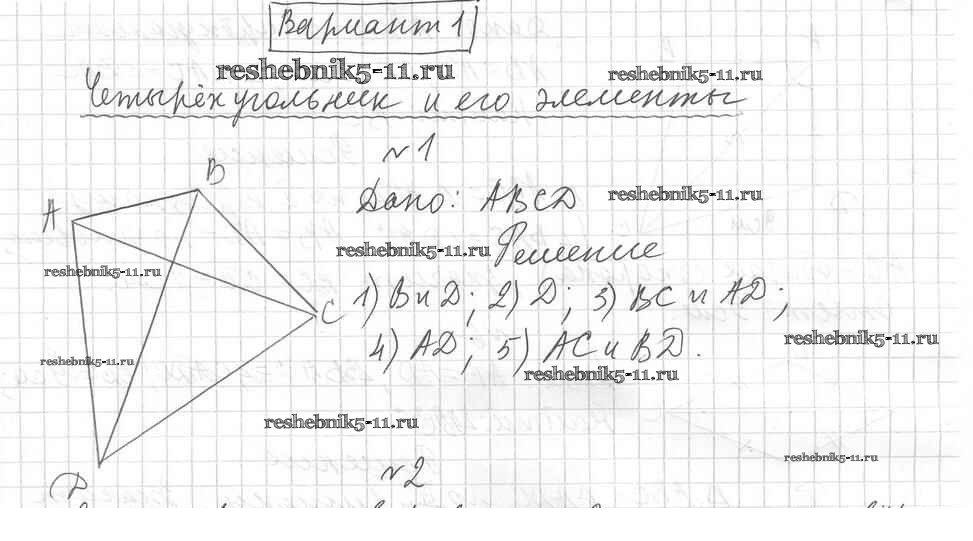 Вариант 1
reshebnik5-11.ru
reshebnik5-11.ru
Четырёхугольник и его элементы
№1
B
A
Дано: ABCD
reshebnik5-11.ru
reshebnik5-11.ru
Решение
reshebnik5-11.ru
1) B и D; 2) D; 3) BC и AD;
C
reshebnik5-11.ru
4) AD; 5) AC и BD.
reshebnik5-11.ru
reshebnik5-11.ru
reshebnik5-11.ru
reshebnik5-11.ru
№2
D